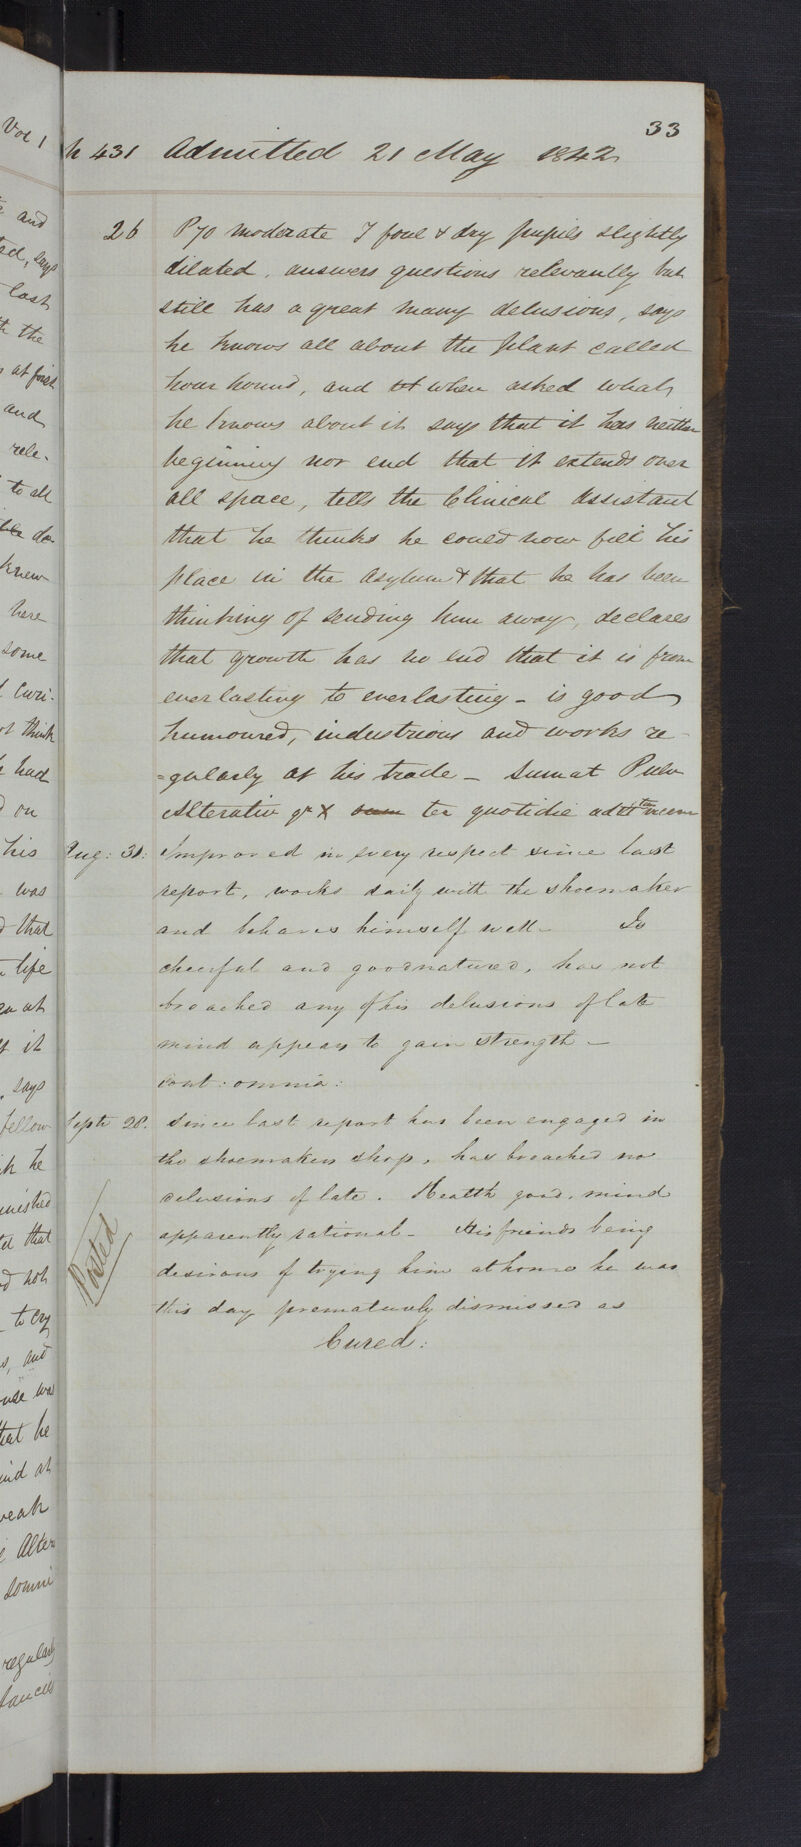 33
h 431 Admitted 21 May 1842
26 P 70 moderate T foul & dry pupils slightly
dilated, answers questions relevantly but
still has a great many delusions, says
he knows all about the plant called
hoar hound, and when asked what
he knows about it says that it has neither
beginning nor end that it extends over
all space, tells the Clinical Assistant
that he thinks he could now fill his
place in the Asylum & that he has been
thinking of sending him away, declares
that growth has no end that it is from
everlasting to everlasting - is good
humoured, industrious and works re-
=gularly at his trade - Sumat Pulv
Alterativ gr X ter quotidie
Aug: 31: Improved in every respect since last
report, works daily with the shoemaker
and behaves himself well - Is
cheerful and goodnatured, has not
broached any of his delusions of late
mind appears to gain strength -
cont: omnia:
Septr 28. Since last report has been engaged in
the shoemakers shop, has broached no
delusions of late. Health good, mind
apparently rational - His friends being
desirous of trying him at home he was
this day prematurely dismissed as
Cured:
Posted
Vol 1
and
says
last
the
at first
and
rele-
to all
do
knew
here
some
think
had
on
his
was
that
life
at
it
says
fellow
he
that
not
to cry
and
was
that he
and at
weak
Alter
regularly
fancies